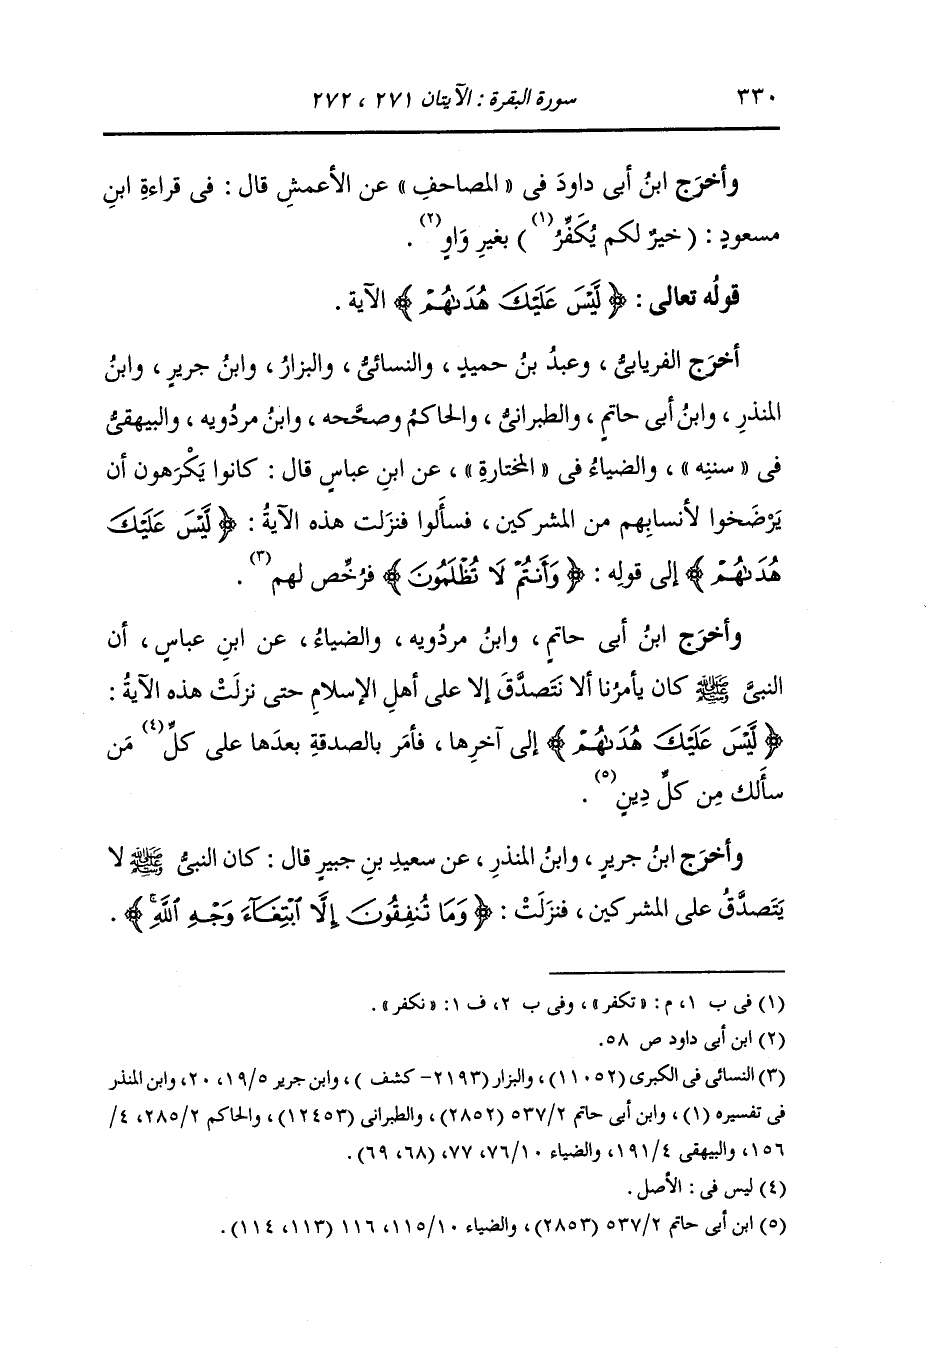 ٣٣٠ سورة البقرة : الآيتان ٢٧١ ، ٢٧٢
وأخرَج ابنُ أبى داودَ فى « المصاحفِ » عن الأعمشِ قال : فى قراءةِ ابنِ
مسعودٍ : ( خيرٌ لكم يُكَفِّرُ(١) ) بغيرِ وَاوٍ(٢) .
قولُه تعالى : ﴿ لَّيْسَ عَلَيْكَ هُدَىٰهُمْ ﴾ الآية .
أخرَج الفريابىُّ ، وعبدُ بنُ حميدٍ ، والنسائىُّ ، والبزارُ ، وابنُ جريرٍ ، وابنُ
المنذرِ ، وابنُ أبى حاتمٍ ، والطبرانىُّ ، والحاكمُ وصحَّحه ، وابنُ مردُويه ، والبيهقىُّ
فى « سننِه » ، والضياءُ فى « المختارةِ » ، عن ابنِ عباسٍ قال : كانوا يَكْرَهون أن
يَرْضَخوا لأنسابِهم من المشركين ، فسأَلوا فنزَلت هذه الآيةُ : ﴿ لَّيْسَ عَلَيْكَ
هُدَىٰهُمْ ﴾ إلى قولِه : ﴿ وَأَنتُمْ لَا تُظْلَمُونَ ﴾ فرُخِّص لهم(٣) .
وأخرَج ابنُ أبى حاتمٍ ، وابنُ مردُويه ، والضياءُ ، عن ابنِ عباسٍ ، أن
النبىَّ ﷺ كان يأمرُنا ألا نَتَصدَّقَ إلا على أهلِ الإسلامِ حتى نزلَتْ هذه الآيةُ :
﴿ لَّيْسَ عَلَيْكَ هُدَىٰهُمْ ﴾ إلى آخرِها ، فأمَر بالصدقةِ بعدَها على كلِّ(٤) مَن
سأَلك مِن كلِّ دِينٍ(٥) .
وأخرَج ابنُ جريرٍ ، وابنُ المنذرِ ، عن سعيدِ بنِ جبيرٍ قال : كان النبىُّ ﷺ لا
يَتَصدَّقُ على المشركين ، فنزَلَتْ : ﴿ وَمَا تُنفِقُونَ إِلَّا ٱبْتِغَآءَ وَجْهِ ٱللَّهِۚ ﴾ .
(١) فى ب ١، م : « تكفر » ، وفى ب ٢، ف ١: « نكفر » .
(٢) ابن أبى داود ص ٥٨.
(٣) النسائى فى الكبرى (١١٠٥٢) ، والبزار (٢١٩٣- كشف ) ، وابن جرير ١٩/٥، ٢٠، وابن المنذر
فى تفسيره (١) ، وابن أبى حاتم ٥٣٧/٢ (٢٨٥٢) ، والطبرانى (١٢٤٥٣) ، والحاكم ٢٨٥/٢، ٤/
١٥٦، والبيهقى ١٩١/٤، والضياء ٧٦/١٠، ٧٧، (٦٨، ٦٩) .
(٤) ليس فى : الأصل .
(٥) ابن أبى حاتم ٥٣٧/٢ (٢٨٥٣) ، والضياء ١١٥/١٠، ١١٦ (١١٣، ١١٤) .